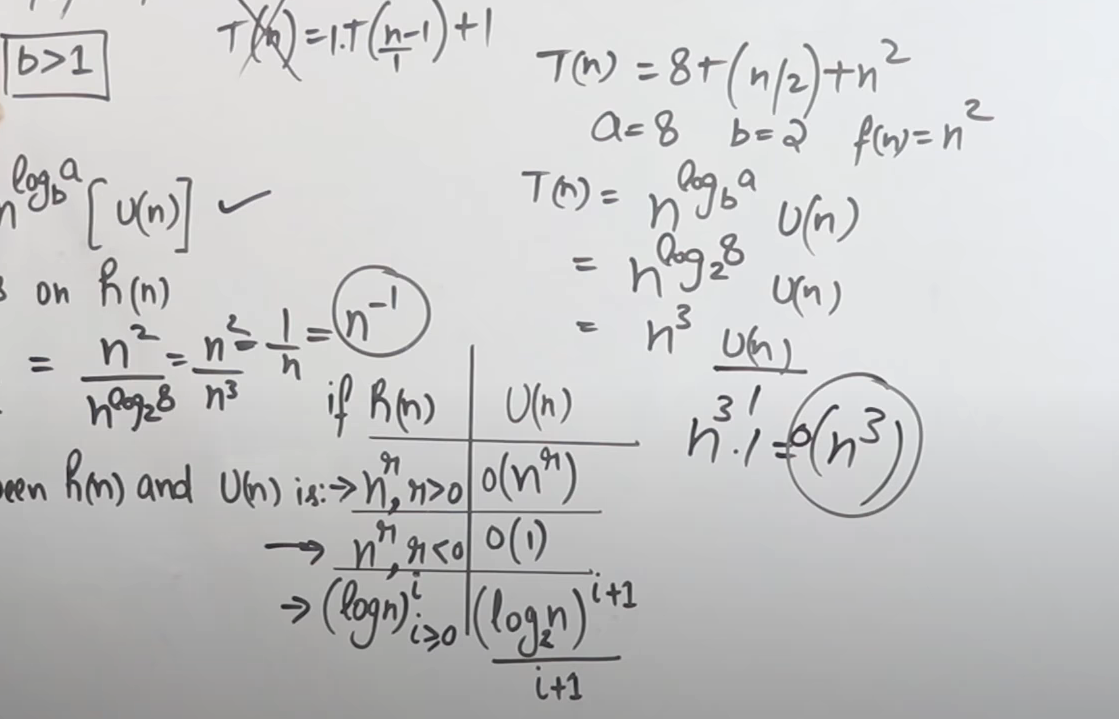 T(n) = 1.T(n-1/1) + 1
b>1
n^log_b a [U(n)] ✓
on h(n)
= n^2/n^log_2 8 = n^2/n^3 = 1/n = n^-1
if h(n) | U(n)
h(n) and U(n) is:→ n^r, r>0 | O(n^r)
→ n^r, r<0 | O(1)
→ (logn)^i i≥0 | (log_2 n)^i+1 / i+1
T(n) = 8T(n/2)+n^2
a=8 b=2 f(n)=n^2
T(n) = n^log_b a U(n)
= n^log_2 8 U(n)
= n^3 U(n)
1
n^3.1 = O(n^3)